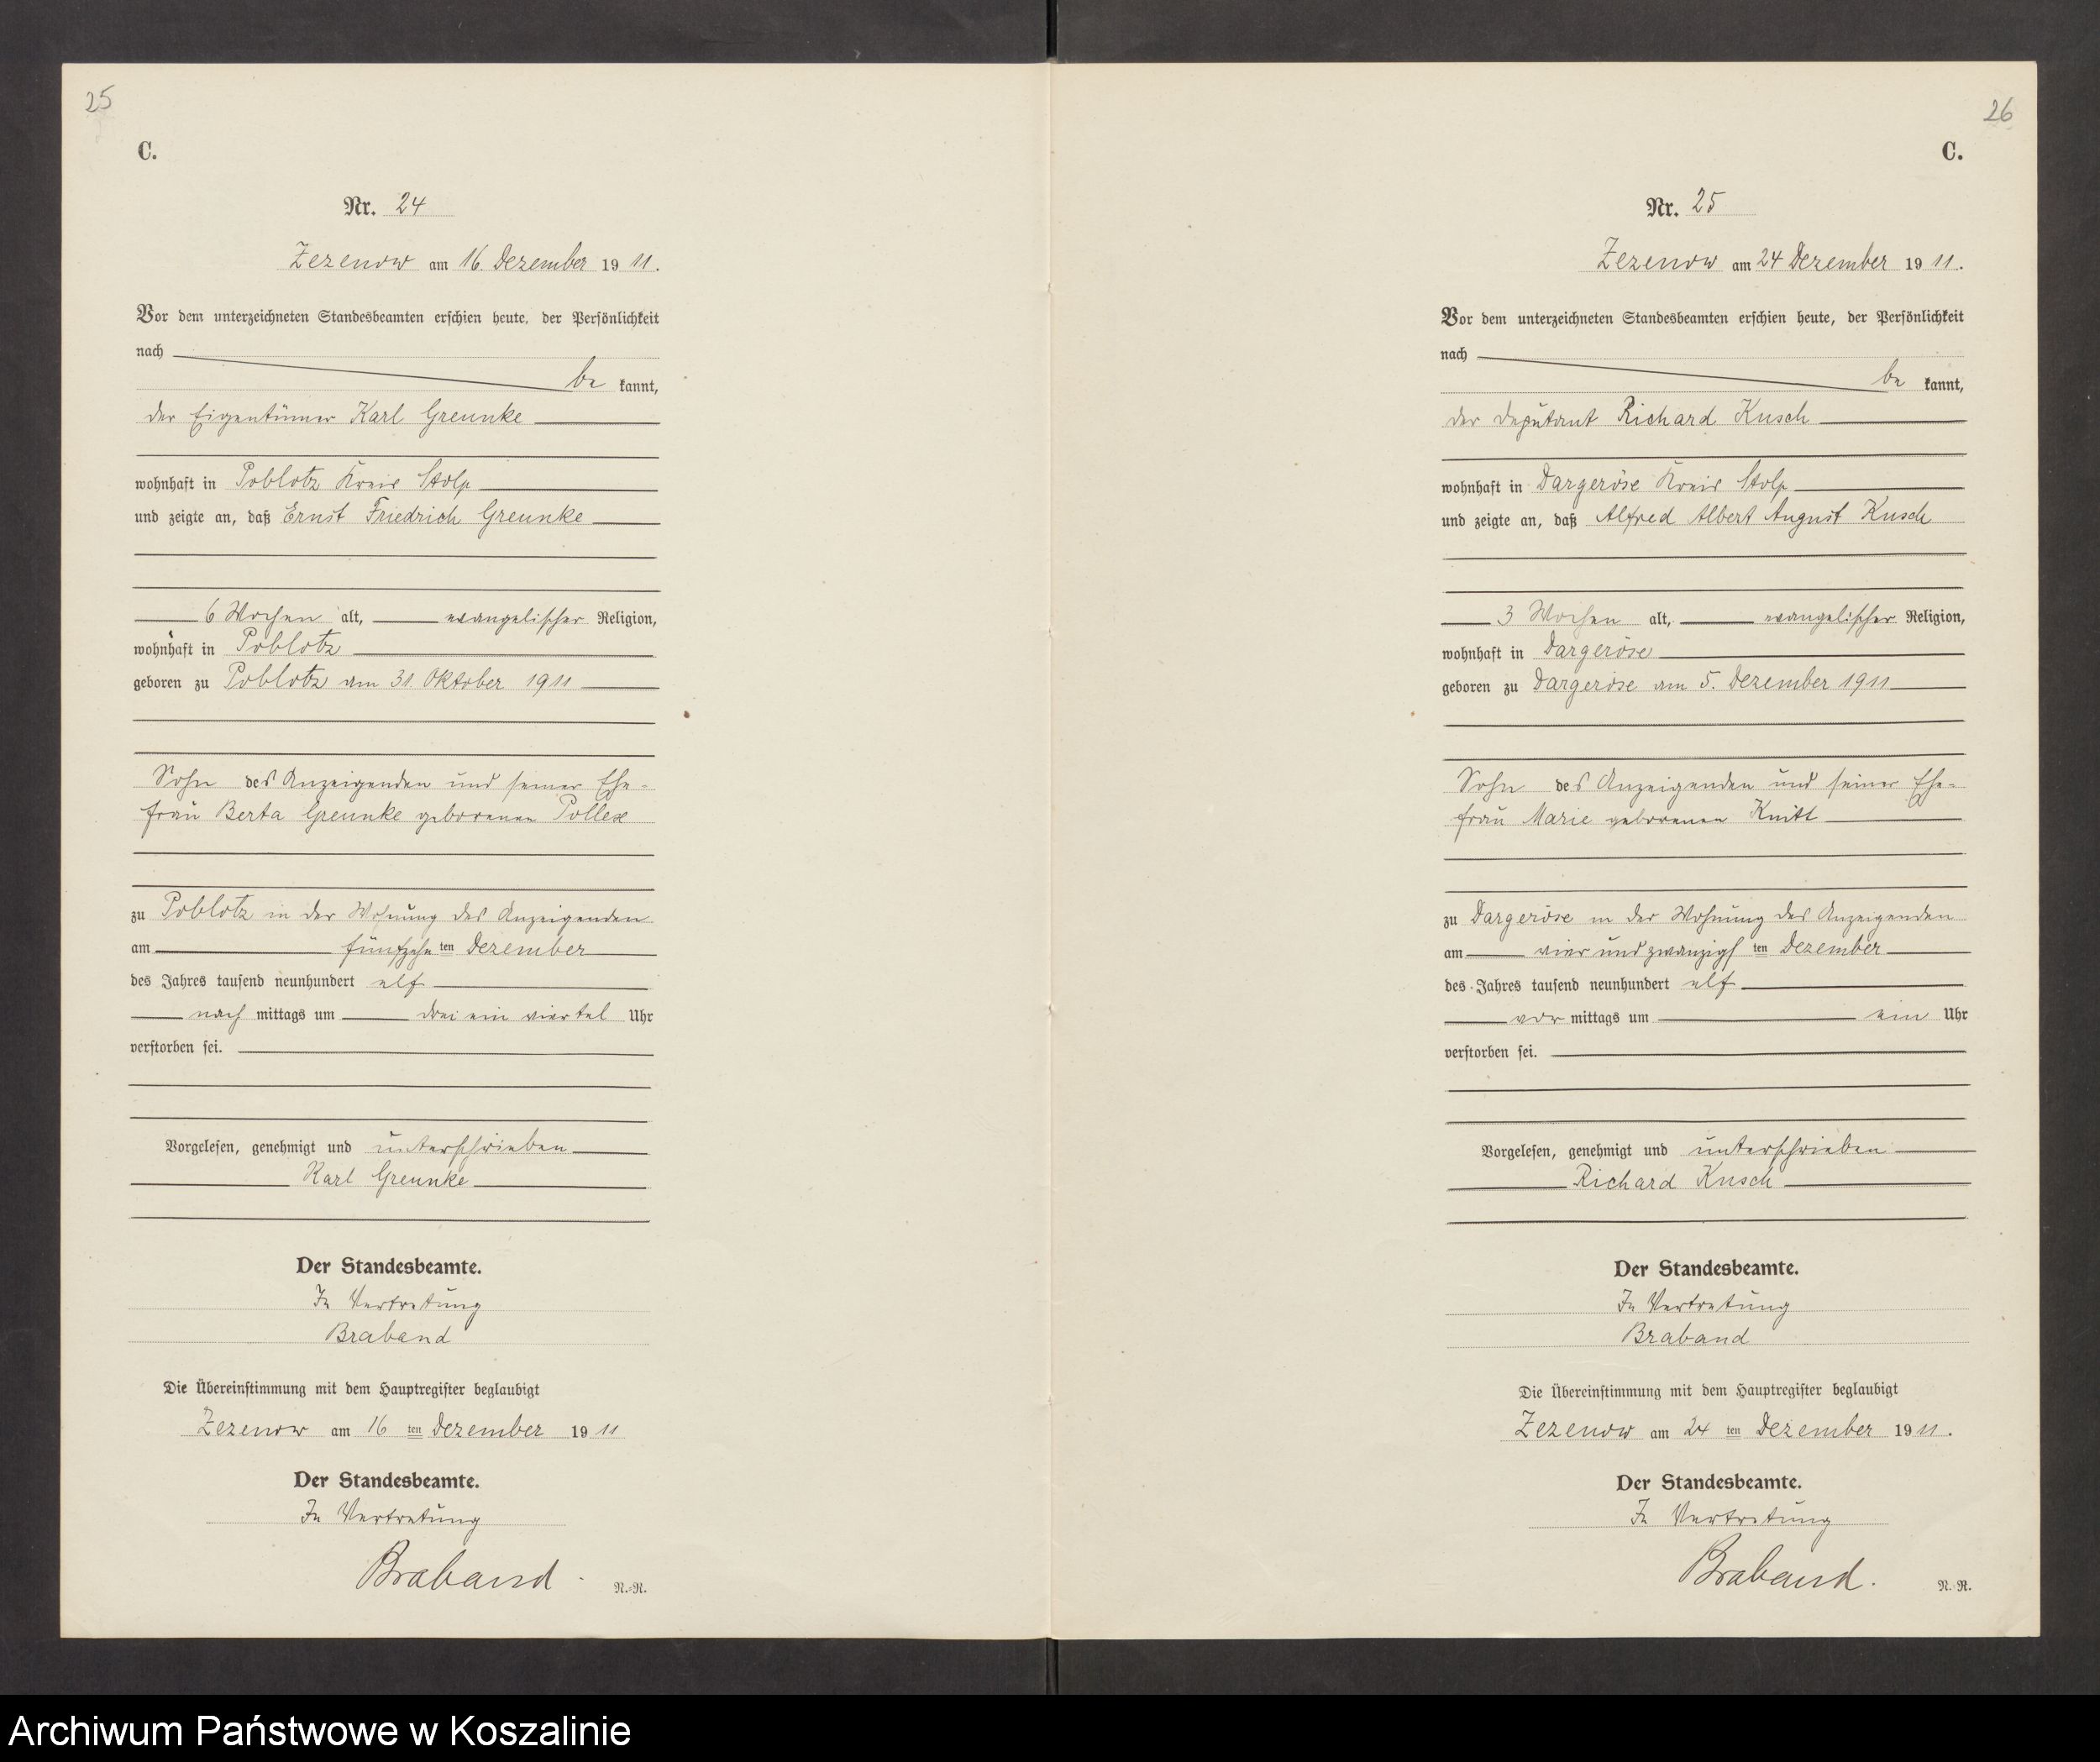 25
C.
Nr. 24
Zezenow am 16. Dezember 19 11.
Vor dem unterzeichneten Standesbeamten erschien heute, der Persönlichkeit
nach
be kannt,
der Eigentümer Karl Greunke
wohnhaft in Poblotz Kreis Stolp
und zeigte an, daß Ernst Friedrich Greunke
6 Wochen alt, evangelischer Religion,
wohnhaft in Poblotz
geboren zu Poblotz am 31. Oktober 1911
Sohn des Anzeigenden und seiner Ehe-
frau Berta Greunke geborenen Pollex
zu Poblotz in der Wohnung des Anzeigenden
am fünfzehn ten Dezember
des Jahres tausend neunhundert elf
nach mittags um drei ein viertel Uhr
verstorben sei.
Vorgelesen, genehmigt und unterschrieben
Karl Greunke
Der Standesbeamte.
In Vertretung
Braband
Die Übereinstimmung mit dem Hauptregister beglaubigt
Zezenow am 16 ten Dezember 19 11
Der Standesbeamte.
In Vertretung
Braband.
N.-R.
26
C.
Nr. 25
Zezenow am 24 Dezember 19 11.
Vor dem unterzeichneten Standesbeamten erschien heute, der Persönlichkeit
nach
be kannt,
der Deputant Richard Kusch
wohnhaft in Dargeröse Kreis Stolp
und zeigte an, daß Alfred Albert August Kusch
3 Wochen alt, evangelischer Religion,
wohnhaft in Dargeröse
geboren zu Dargeröse am 5. Dezember 1911
Sohn des Anzeigenden und seiner Ehe-
frau Marie geborenen Knitt
zu Dargeröse in der Wohnung des Anzeigenden
am vier und zwanzigs ten Dezember
des Jahres tausend neunhundert elf
vor mittags um ein Uhr
verstorben sei.
Vorgelesen, genehmigt und unterschrieben
Richard Kusch
Der Standesbeamte.
In Vertretung
Braband
Die Übereinstimmung mit dem Hauptregister beglaubigt
Zezenow am 24 ten Dezember 19 11.
Der Standesbeamte.
In Vertretung
Braband.
N. R.
Archiwum Państwowe w Koszalinie